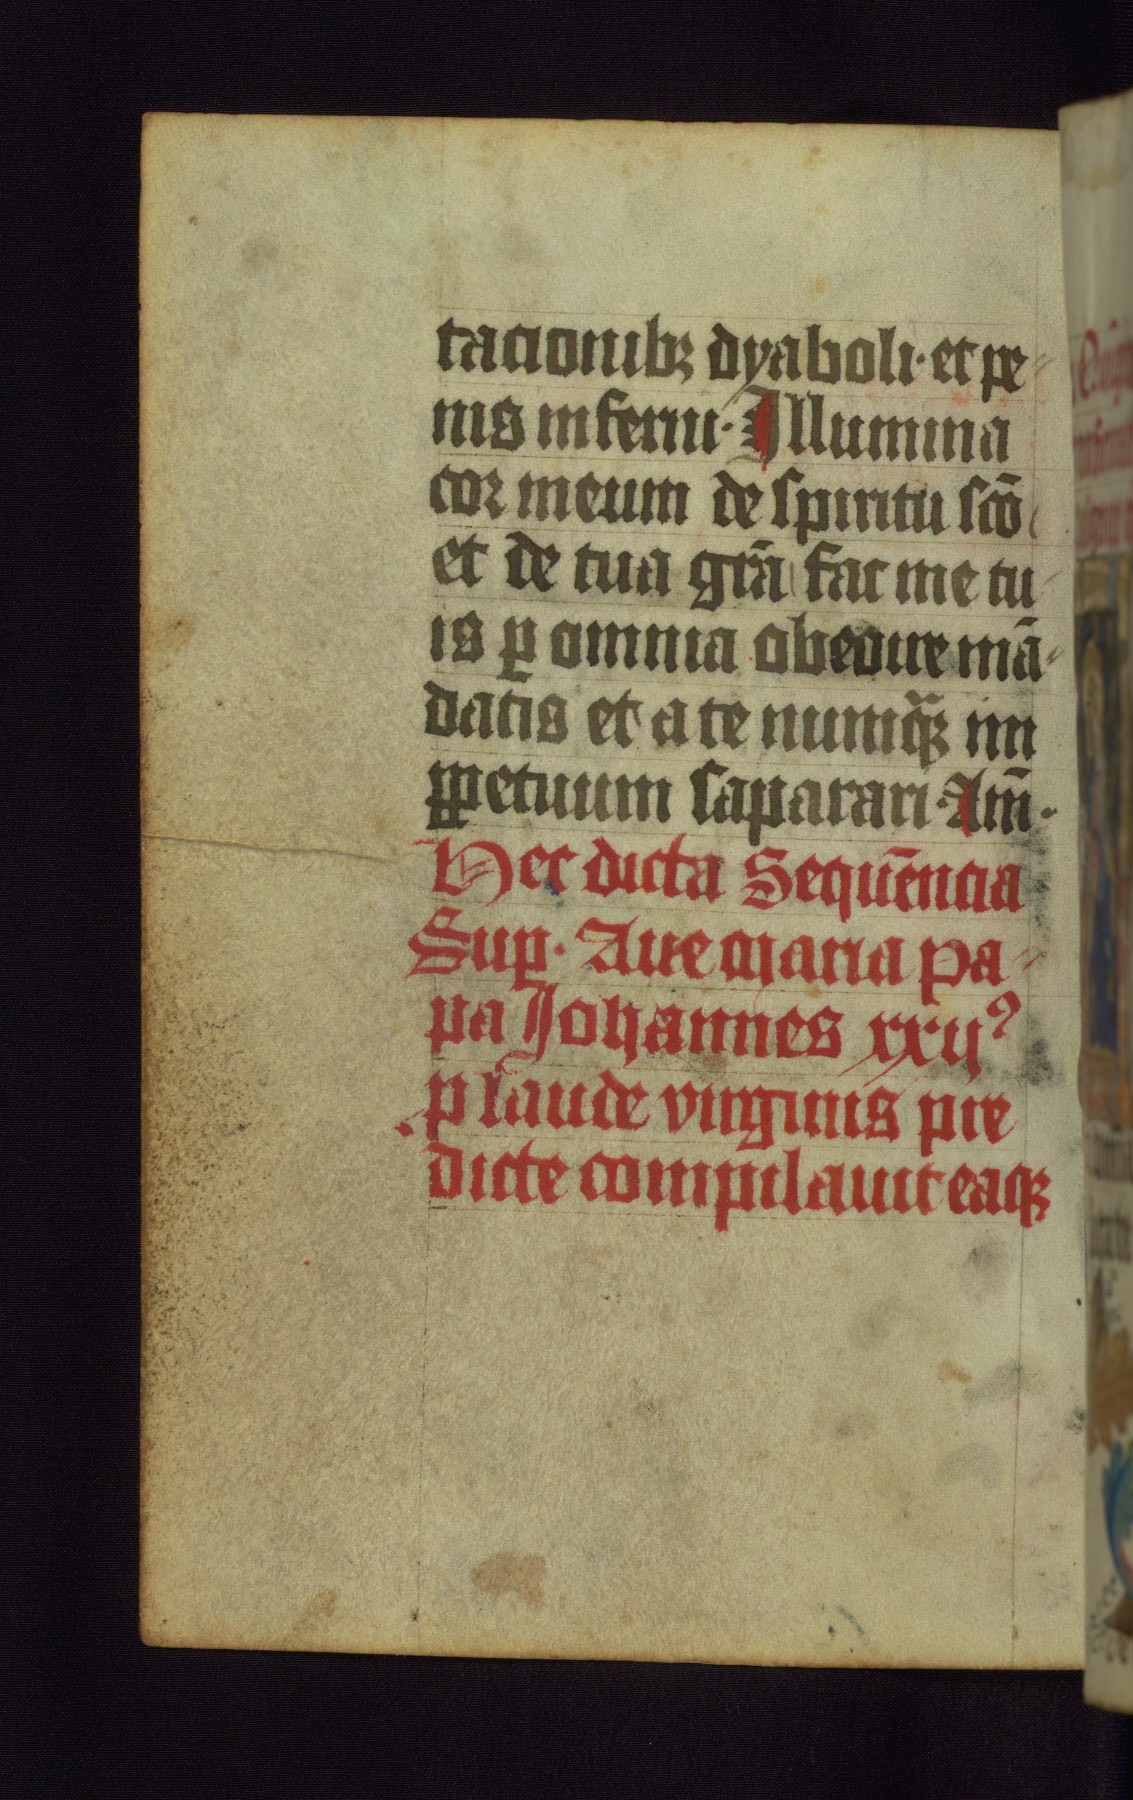 tacionibꝫ dyaboli· et pe-
nis inferni· Illumina
cor meum de spiritu scō
et de tua gr̄a fac me tu-
is ꝑ omnia obedire mā-
datis et a te numq̄ꝫ im
ꝑpetuum saparari· Am̄·
Hec dicta Sequēncia
Suꝑ· Aue maria pa-
pa Johannes xxijꝰ
ꝑ laude virginis pre
dicte compilauit eaqꝫ